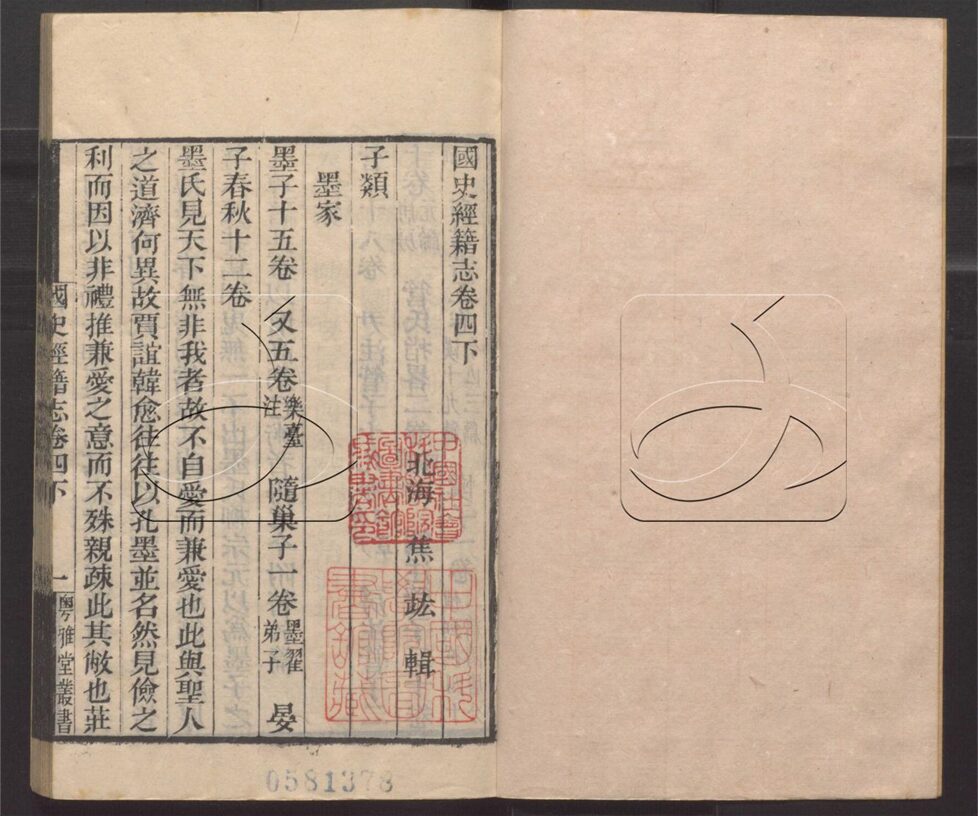 國史經籍志卷四下
北海 焦竑 輯
子類
墨家
墨子十五卷 又五卷樂臺注 隨巢子一卷墨翟弟子 晏
子春秋十二卷
墨氏見天下無非我者故不自愛而兼愛也此與聖人
之道濟何異故賈誼韓愈往往以孔墨並名然見儉之
利而因以非禮推兼愛之意而不殊親疎此其敝也莊
國史經籍志卷四下 一 粵雅堂叢書
0581378